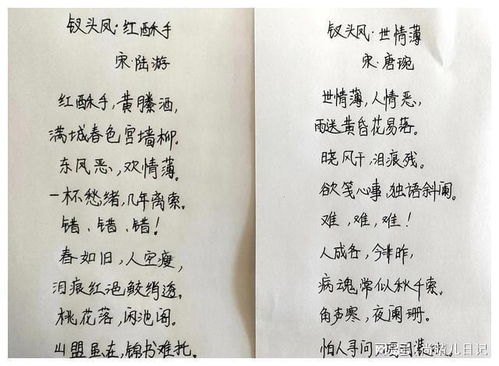 钗头凤·红酥手
宋·陆游
红酥手，黄縢酒，
满城春色宫墙柳。
东风恶，欢情薄。
一杯愁绪，几年离索。
错、错、错！
春如旧，人空瘦，
泪痕红浥鲛绡透。
桃花落，闲池阁。
山盟虽在，锦书难托。
钗头凤·世情薄
宋·唐琬
世情薄，人情恶，
雨送黄昏花易落。
晓风干，泪痕残。
欲笺心事，独语斜阑。
难，难，难！
人成各，今非昨，
病魂常似秋千索。
角声寒，夜阑珊。
怕人寻问，